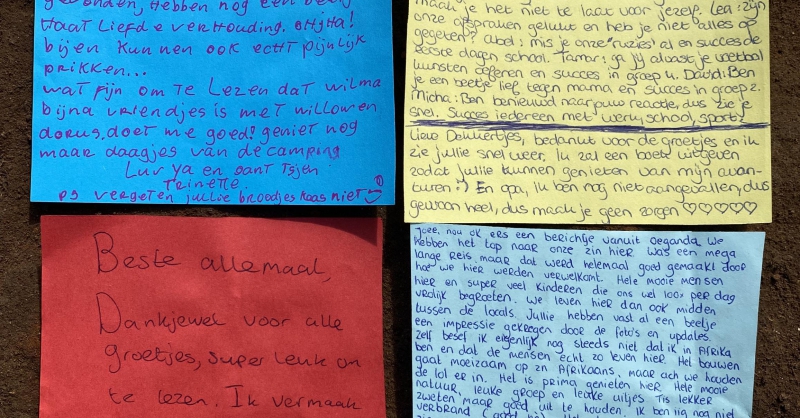 gevonden, hebben nog een beetje
Haat Liefde verhouding. OHJHA!
bijen kunnen ook echt pijnlijk
prikken...
wat fijn om te Lezen dat wilma
bijna vriendjes is met willow en
dorus, doet me goed! geniet nog
maar daagjes van de camping
Luv ya en dant tsjen
Trinette.
PS vergeten jullie broodjes kaas niet
maak je het niet te laat voor jezelf. Lea: zijn
onze afspraken gelukt en heb je niet alles op
gegeten? Abel: mis je onze "ruzies" al en succes de
eerste dagen school. Tamar: ga jij alvast je voetbal
kunsten oefenen en succes in groep 4. David: Ben
je een beetje lief tegen mama en succes in groep 2.
Micha: Ben benieuwd naar jouw reactie, dus zie je
snel. Succes iedereen met werk, school, sport!
Lieve Denkertjes, bedankt voor de groetjes en ik
zie jullie snel weer. Ik zal een boek uitgeven
zodat jullie kunnen genieten van mijn avon-
turen :) En opa, ik ben nog niet aangevallen, dus
gewoon heel, dus maak je geen zorgen ♡♡♡♡♡
Beste allemaal,
Dankjewel voor alle
groetjes, super leuk om
te lezen. Ik vermaak
Joee, nou ok eers een berichtje vanuit Oeganda. We
hebben het top naar onze zin hier. Was een mega
lange reis, maar dat werd helemaal goed gemaakt door
hoe we hier werden verwelkomt. Hele mooie mensen
hier en super veel kinderen die ons wel 100x per dag
vrolijk begroeten. We leven hier dan ook midden
tussen de locals. Jullie hebben vast al een beetje
een impressie gekregen door de foto's en updates.
Zelf besef ik eigenlijk nog steeds niet dat ik in Afrika
ben en dat de mensen echt zo leven hier. Het bouwen
gaat moeizaam op zn Afrikaans, maar ach we houden
de lol er in. Het is prima genieten hier. Hele mooie
natuur, leuke groep en leuke uitjes. Tis lekker
zweten maar goed uit te houden. Ik ben nog niet
verbrand